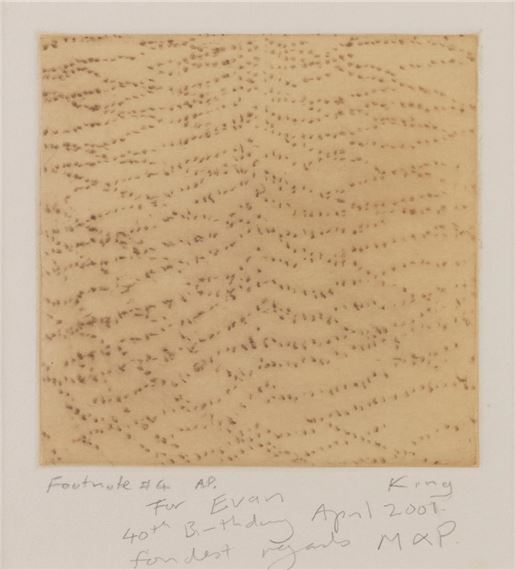 Footnote #4 AP. King
For Evan
40th Birthday April 2001.
fondest regards M & P.